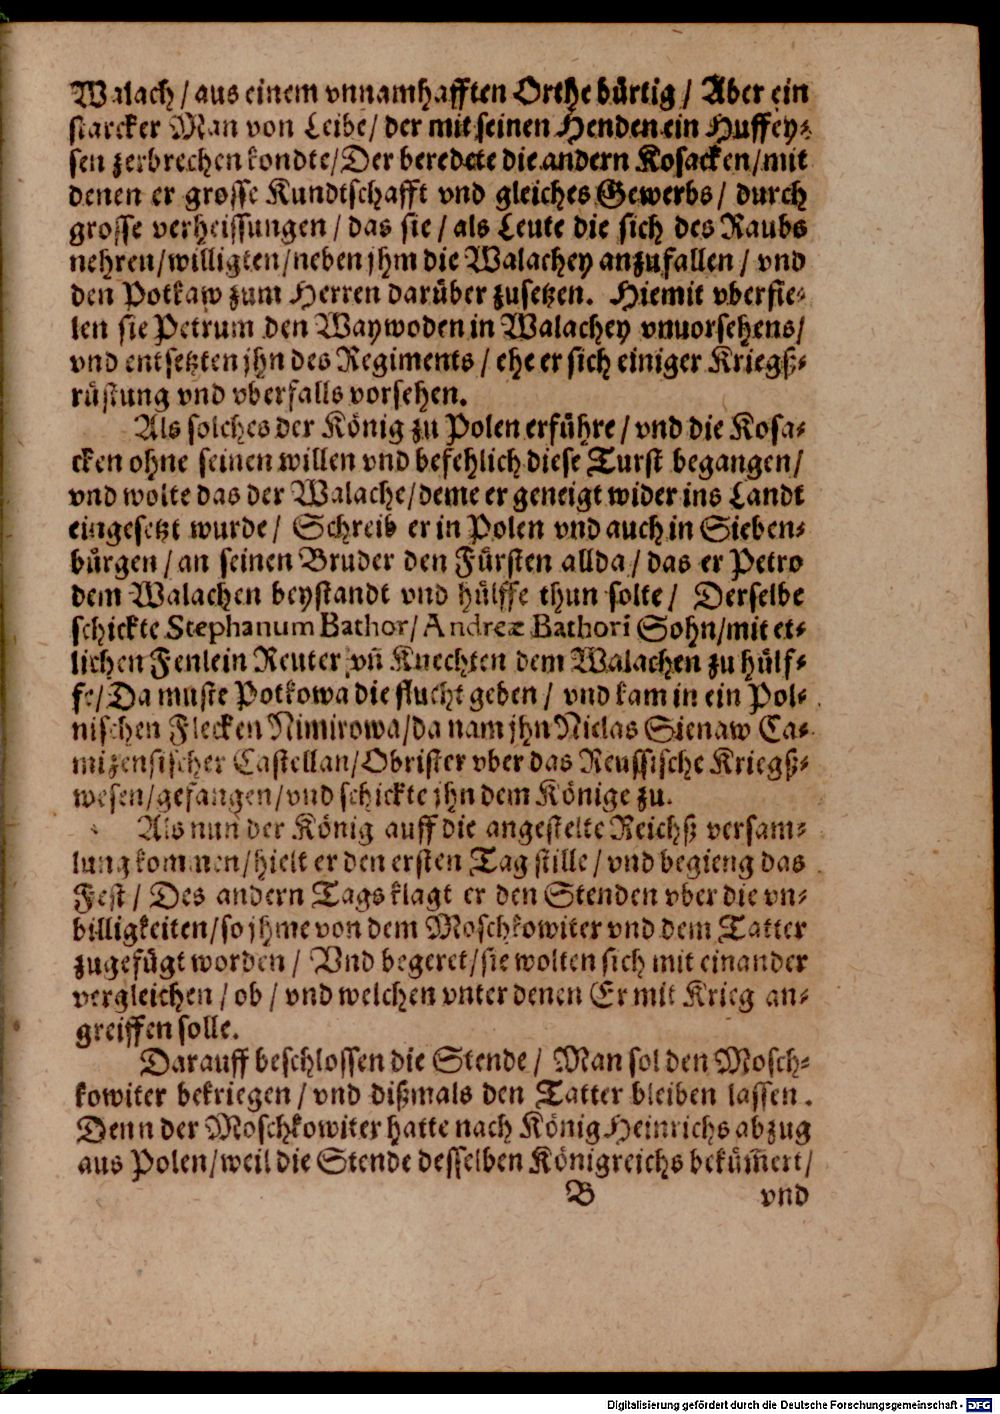 Walach / aus einem vnnamhafften Orthe bürtig / Aber ein
starcker Man von Leibe / der mit seinen Henden ein Huffey⸗
sen zerbrechen kondte / Der beredete die andern Kosacken / mit
denen er grosse Kundtschafft vnd gleiches Gewerbs / durch
grosse verheissungen / das sie / als Leute die sich des Raubs
nehren / willigten / neben jhm die Walachey anzufallen / vnd
den Potkaw zum Herren darüber zusetzen. Hiemit vberfie⸗
len sie Petrum den Waywoden in Walachey vnuorsehens /
vnd entsetzten jhn des Regiments / ehe er sich einiger Kriegß⸗
rüstung vnd vberfalls vorsehen.
Als solches der König zu Polen erführe / vnd die Kosa⸗
cken ohne seinen willen vnd befehlich diese Turst begangen /
vnd wolte das der Walache / deme er geneigt wider ins Landt
eingesetzt wurde / Schreib er in Polen vnd auch in Sieben⸗
bürgen / an seinen Bruder den Fürsten allda / das er Petro
dem Walachen beystandt vnd hülffe thun solte / Derselbe
schickte Stephanum Bathor / Andreæ Bathori Sohn / mit et⸗
lichen Fenlein Reuter vñ Knechten dem Walachen zu hülf⸗
fe / Da muste Potkowa die flucht geben / vnd kam in ein Pol⸗
nischen Flecken Nimirowa / da nam jhn Niclas Sienaw Ca⸗
mizensischer Castellan / Obrister vber das Reussische Kriegß⸗
wesen / gefangen / vnd schickte jhn dem Könige zu.
Als nun der König auff die angestelte Reichß versam⸗
lung kommen / hielt er den ersten Tag stille / vnd begieng das
Fest / Des andern Tags klagt er den Stenden vber die vn⸗
billigkeiten / so jhme von dem Moschkowiter vnd dem Tatter
zugefügt worden / Vnd begeret / sie wolten sich mit einander
vergleichen / ob / vnd welchen vnter denen Er mit Krieg an⸗
greiffen solle.
Darauff beschlossen die Stende / Man sol den Mosch⸗
kowiter bekriegen / vnd dißmals den Tatter bleiben lassen.
Denn der Moschkowiter hatte nach König Heinrichs abzug
aus Polen / weil die Stende desselben Königreichs bekům̃ert /
B vnd
Digitalisierung gefördert durch die Deutsche Forschungsgemeinschaft - DFG